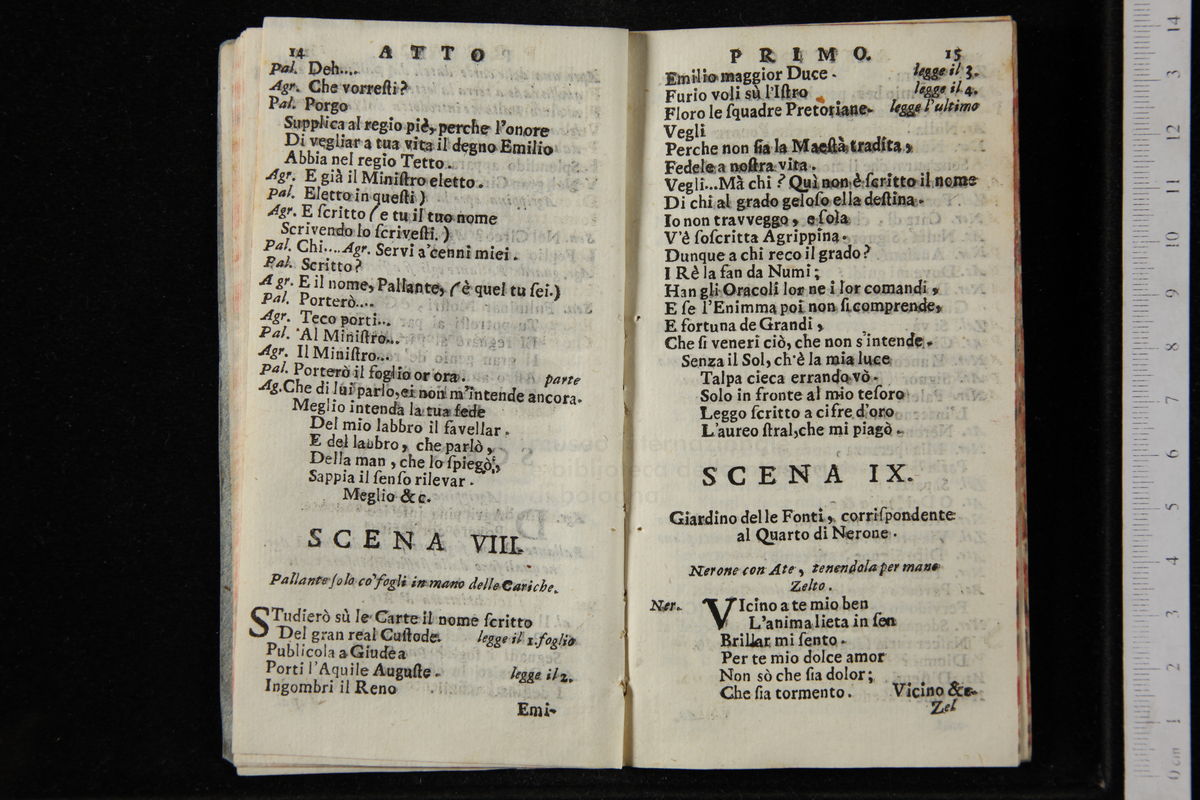 14 ATTO
Pal. Deh....
Agr. Che vorreſti?
Pal. Porgo
Supplica al regio piè, perche l'onore
Di vegliar a tua vita il degno Emilio
Abbia nel regio Tetto.
Agr. E già il Miniſtro eletto.
Pal. Eletto in queſti)
Agr. E ſcritto (e tu il tuo nome
Scrivendo lo ſcriveſti.)
Pal. Chi.... Agr. Servi a'cenni miei.
Pal. Scritto?
Agr. E il nome, Pallante, (è quel tu ſei.)
Pal. Porterò....
Agr. Teco porti...
Pal. Al Miniſtro...
Agr. Il Miniſtro...
Pal. Porterò il foglio or ora. parte
Ag. Che di lui parlo, ei non m'intende ancora.
Meglio intenda la tua fede
Del mio labbro il favellar.
E del labbro, che parlò,
Della man, che lo ſpiegò,
Sappia il ſenſo rilevar.
Meglio &c.
SCENA VIII.
Pallante ſolo co'fogli in mano delle Cariche.
STudierò sù le Carte il nome ſcritto
Del gran real Cuſtode. legge il 1. foglio
Publicola a Giudea
Porti l'Aquile Auguſte. legge il 2.
Ingombri il Reno
Emi-
PRIMO. 15
Emilio maggior Duce. legge il 3.
Furio voli sù l'Iſtro legge il 4.
Floro le ſquadre Pretoriane. legge l'ultimo
Vegli
Perche non ſia la Maeſtà tradita,
Fedele a noſtra vita.
Vegli... Mà chi? Quì non è ſcritto il nome
Di chi al grado geloſo ella deſtina.
Io non travveggo, e ſola
V'è ſoſcritta Agrippina.
Dunque a chi reco il grado?
I Rè la fan da Numi;
Han gli Oracoli lor ne i lor comandi,
E ſe l'Enimma poi non ſi comprende,
E fortuna de Grandi,
Che ſi veneri ciò, che non s'intende.
Senza il Sol, ch'è la mia luce
Talpa cieca errando vò.
Solo in fronte al mio teſoro
Leggo ſcritto a cifre d'oro
L'aureo ſtral, che mi piagò.
SCENA IX.
Giardino delle Fonti, corriſpondente
al Quarto di Nerone.
Nerone con Ate, tenendola per mano
Zelto.
Ner. VIcino a te mio ben
L'anima lieta in ſen
Brillar mi ſento.
Per te mio dolce amor
Non sò che ſia dolor;
Che ſia tormento. Vicino &c.
Zel